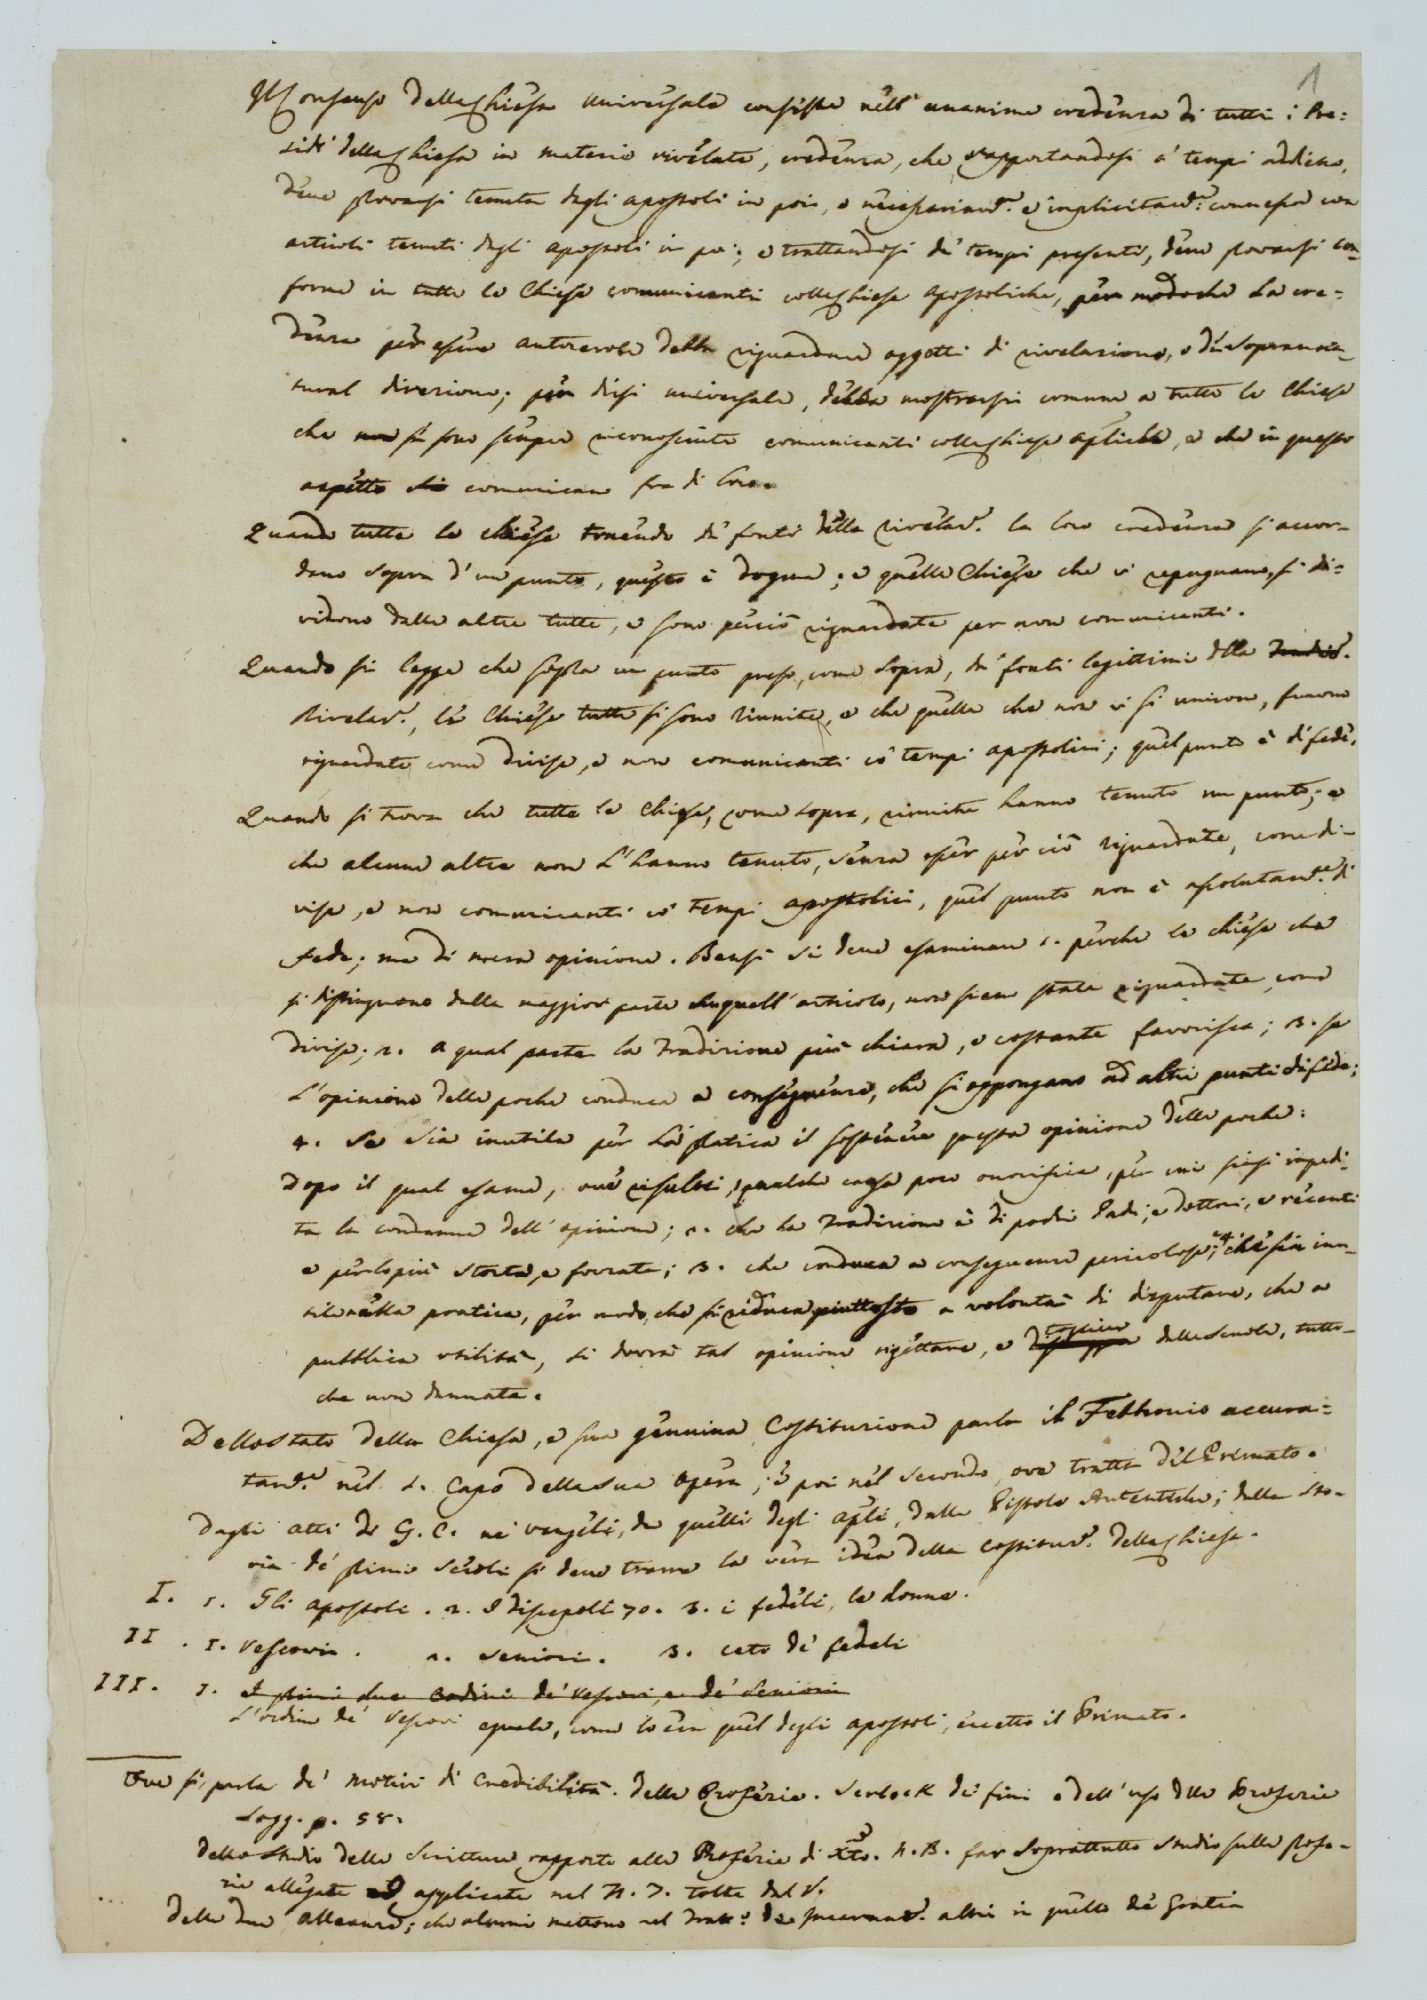 1
Il Consenso della Chiesa universale consiste nell'unanime credenza di tutti i Pre=
sidi della Chiesa in materie rivelate, credenza, che rapportandosi a' tempi addietro,
deve provarsi tenuta dagli apostoli in poi, o necessariam.e e implicitam.e connessa con
articoli tenuti dagli apostoli in poi; e trattandosi de' tempi presenti, deve provarsi con=
forme in tutte le Chiese comunicanti colle Chiese apostoliche, per modo che la cre=
denza per essere autorevole debba riguardare oggetti di rivelazione, o di sopranna=
tural direzione; per dirsi universale, debba mostrarsi comune a tutte le Chiese
che si sono sempre riconosciute comunicanti colle Chiese apliche, e che in questo
aspetto comunicano fra di loro.
Quando tutte le chiese traendo da' fonti della rivelaz.e la loro credenza si accor=
dano sopra d'un punto, questo è dogma; e quelle Chiese che vi repugnano, si di=
vidono dalle altre tutte, e sono perciò riguardate per non comunicanti.
Quando si legge che sopra un punto preso, come sopra, da' fonti legittimi della Tradiz.e
Rivelaz.e, le Chiese tutte si sono riunite, e che quelle che non vi si unirono, furono
riguardate come divise, e non comunicanti co' tempi apostolici; quel punto è di fede.
Quando si trova che tutte le Chiese, come sopra, riunite hanno tenuto un punto; e
che alcune altre non l'hanno tenuto, senza esser per ciò riguardate, come di=
vise, e non comunicanti co' tempi apostolici, quel punto non è assolutam.e di
fede; ma di mera opinione. Bensì si deve esaminare 1. perche le chiese che
si distinguono dalla maggior parte in quell'articolo, non siano state riguardate come
divise; 2. a qual parte la Tradizione più chiara, e costante favorisca; 3. se
l'opinione delle poche conduca a conseguenze, che si oppongano ad altri punti di fede;
4. se sia inutile per la pratica il sostenere questa opinione delle poche:
dopo il qual esame, ove risulti, qualche causa poco onorifica, per cui siasi impedi=
ta la condanna dell'opinione; 2. che la Tradizione è di pochi Padri, e dottori, e recenti
e perlopiù storta, e forzata; 3. che conduca a conseguenze pericolose; e 4. che sia inu=
tile nella pratica, per modo che si riduca piuttosto a volontà di disputare, che a
pubblica utilità, si dovrà tal opinione rigettare, e togliere dalle scuole, tutto=
che non dannata.
Dello Stato della Chiesa, e sua genuina Costituzione parla il Febbronio accura=
tam.e nel 1. Capo della sua opera; e poi nel secondo, ove tratta del Primato.
Dagli atti di G. C. ne' vangeli, da quelli degli apli, dalle Pistole Autentiche; dalla Sto=
ria de' primi secoli si deve trarre la vera idea della costituz.e della Chiesa.
I. 1. Gli apostoli. 2. I discepoli 70. 3. i fedeli, le donne.
II. 1. Vescovi. 2. seniori. 3. ceto de' fedeli
III. 1. I primi due ordini de' Vescovi, e de' Seniori
L'ordine de' Vescovi eguale, come lo era quel degli apostoli, eccetto il Primato.
Ove si parla de' motivi di Credibilità. delle Profezie. Serlock de' fini e dell'uso delle Profezie
Legg. p. 58.
dello studio delle Scritture rapporto alle Profezie di Xto. N.B. far soprattutto studio sulle profe=
zie allegate ed applicate nel N. T. tolte dal V.
delle due alleanze; che alcuni mettono nel Tratt.o de Incarnat.e altri in quello de Gratia